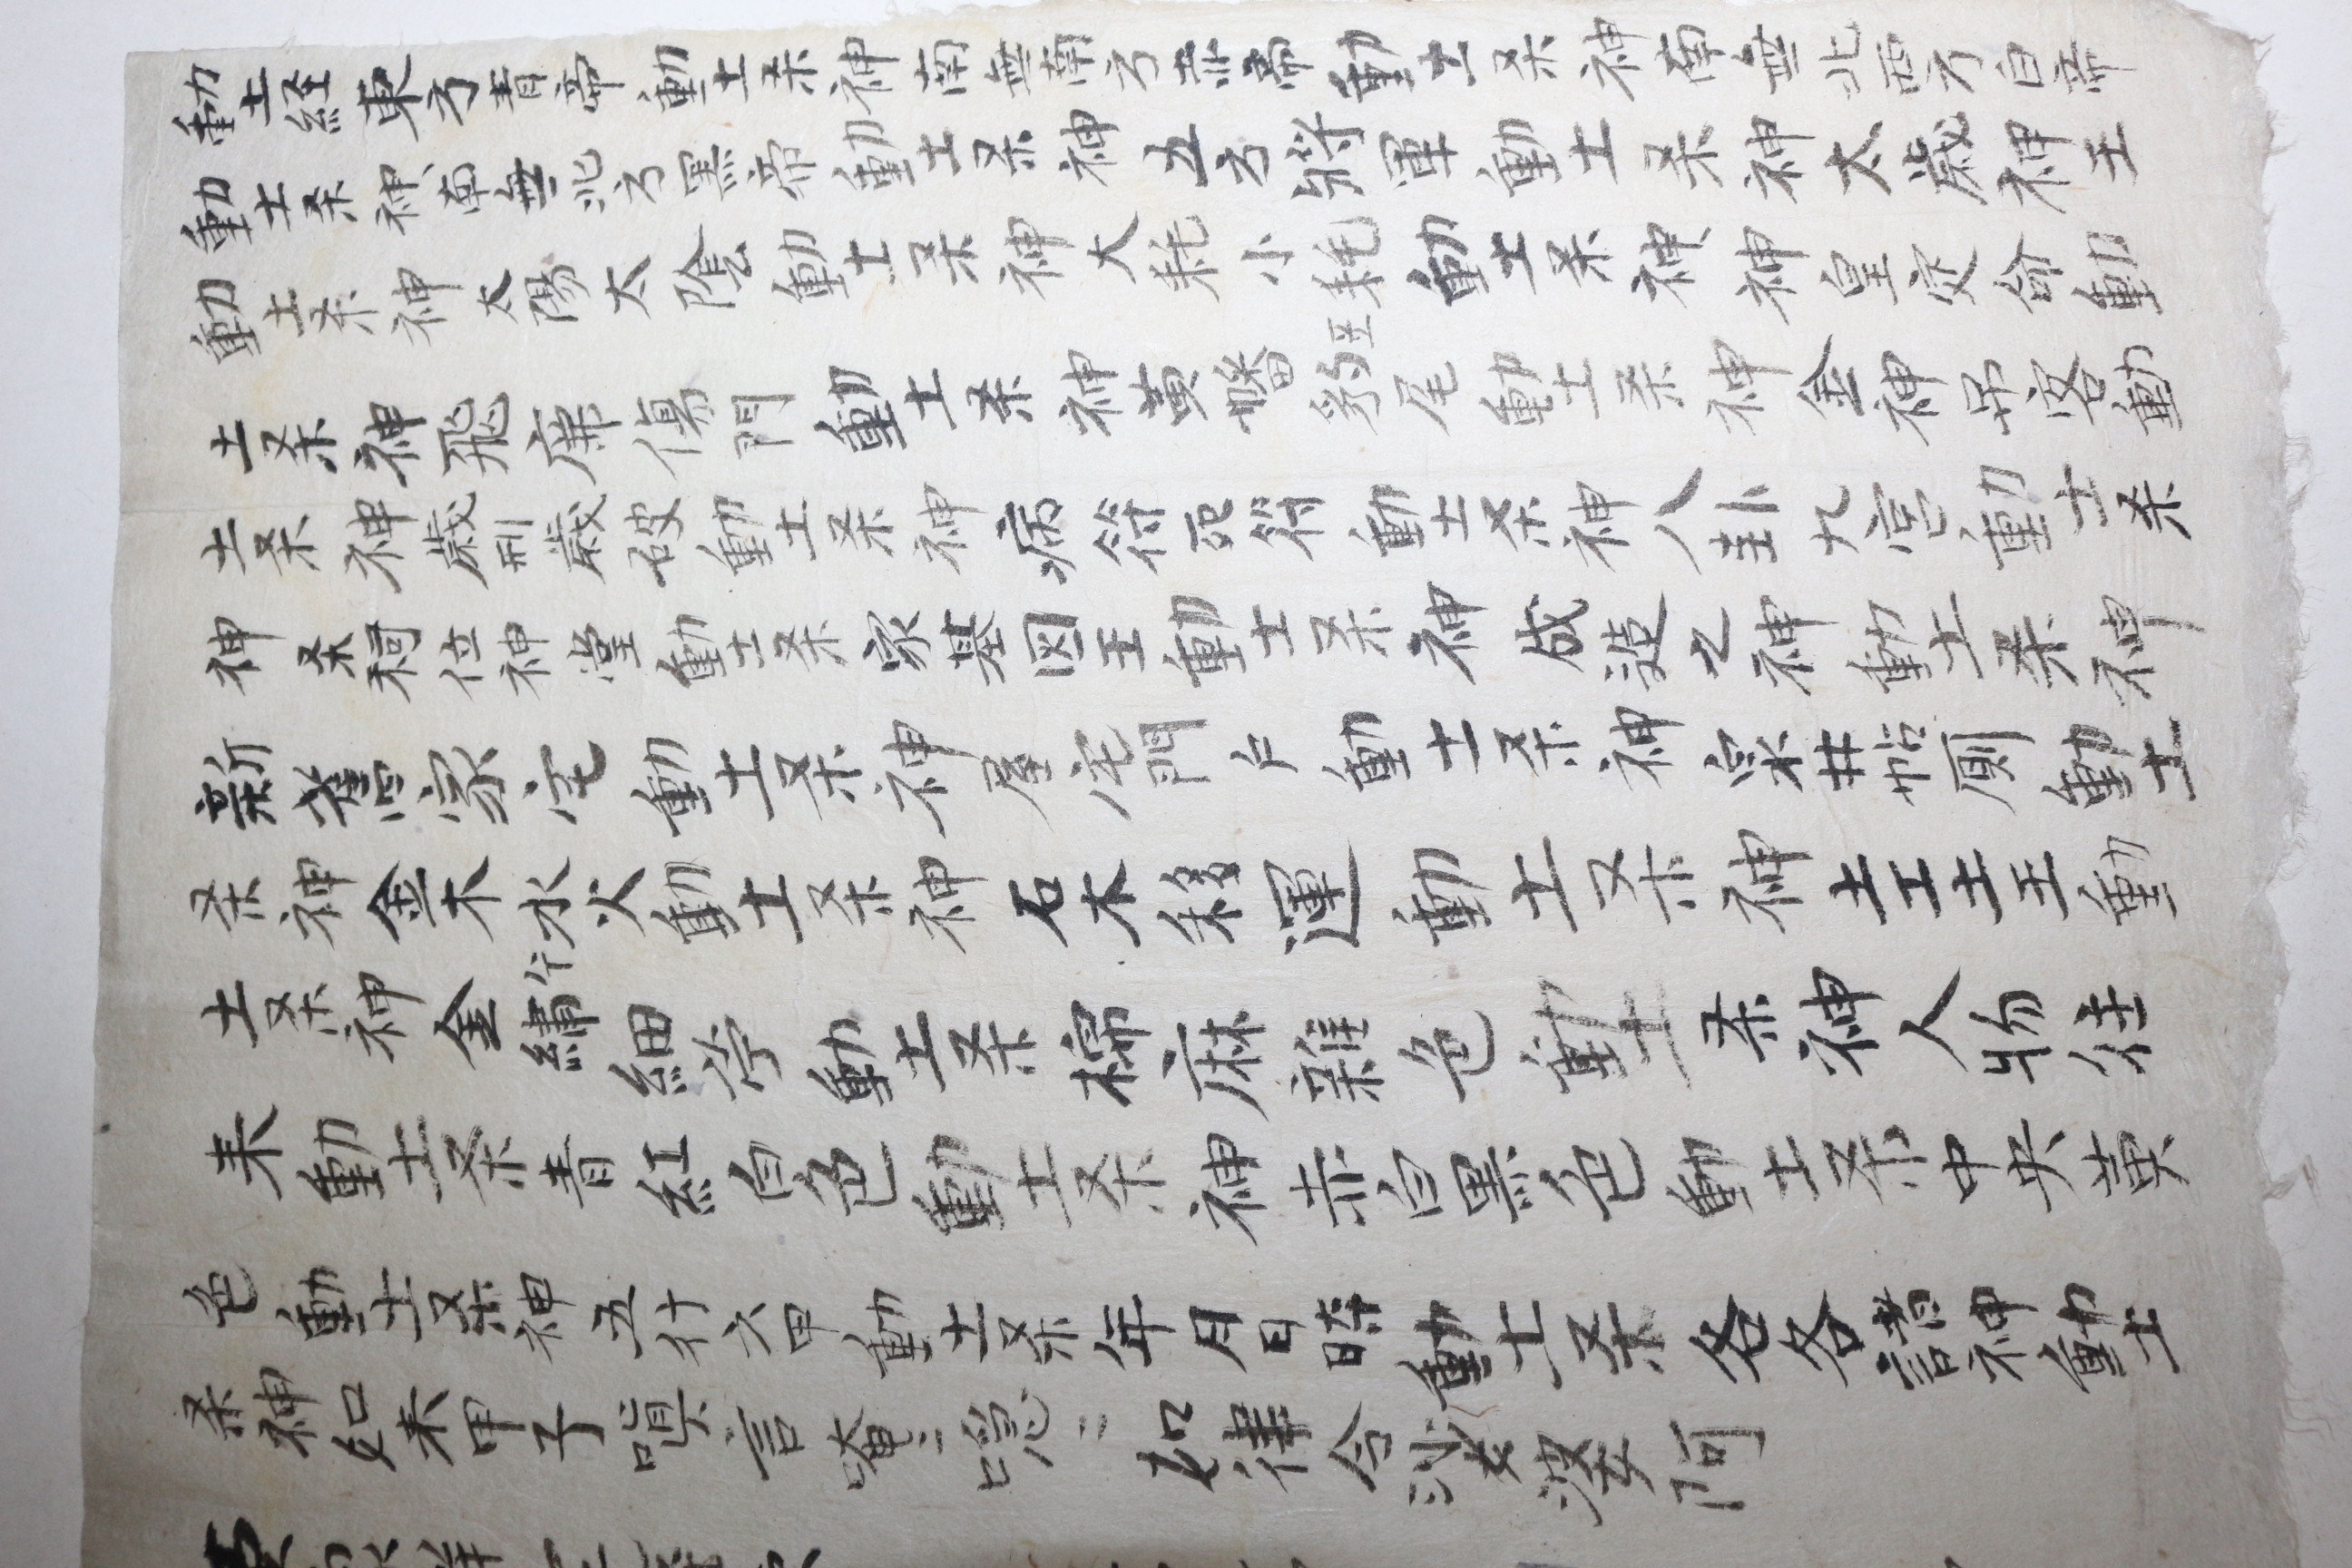 動土経東方青帝動土杀神南無南方赤帝動土杀神南無北西方白帝
動土杀神南無北方黑帝動土杀神五方將軍動土杀神太歲神王
動土杀神太陽太陰動土杀神大耗小耗動土杀神神皇定命動
土杀神飛廉傷門動土杀神黃幡豹尾動土杀神金神吊客動
土杀神歲刑歲破動土杀神病符死符動土杀神八卦九宮動土杀
神杀祠位神堂動土杀家基因王動土杀神成造之神動土杀神
新舊家宅動土杀神屋宅門户動土杀神泉井帖厠動土
杀神金木水火動土杀神石木移運動土杀神土工土王動
土杀神金繡細苧動土杀棉麻雜色動土杀神人物往
来動土杀青紅白色動土杀神赤白黑色動土杀中央黃
色動土杀神五行六甲動土杀年月日時動土杀各各諸神動土
杀神如来甲子嗔言唵〻㘃〻如律令沙婆阿